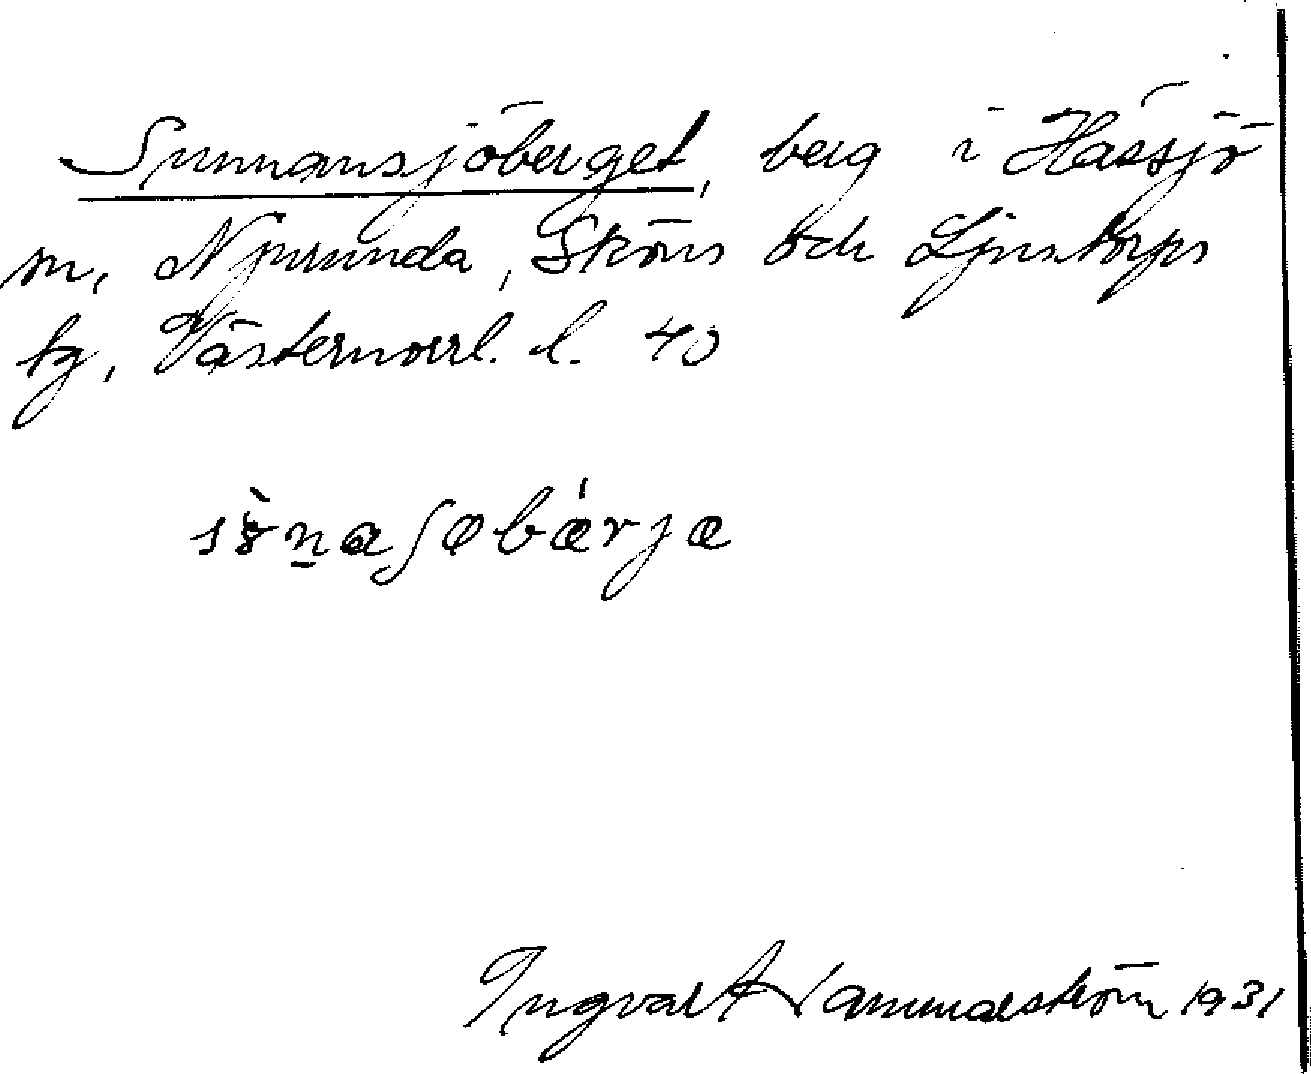 Sunnansjöberget, berg i Hässjö
sn, Njurunda, Sköns och Ljustorps
tg, Västernorrl. l. 40
Ingvar Hammarström 1931